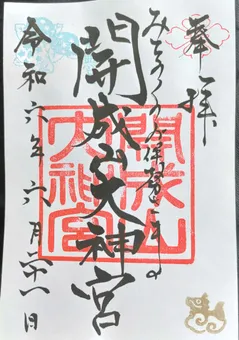 奉拝
みちのくのお伊勢さまの
開成山大神宮
開成山大神宮
令和六年六月廿一日